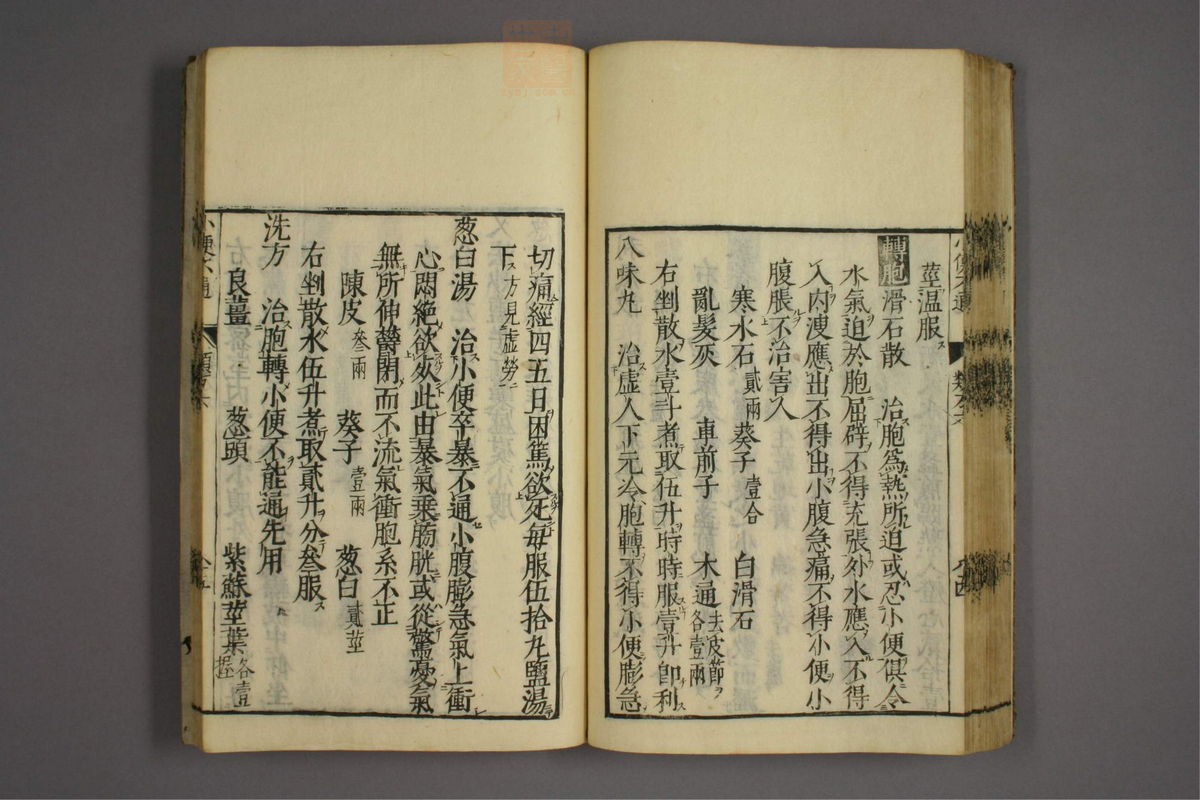 莖温服
轉胞 滑石散 治胞爲熱所迫或忍小便俱令
水氣迫於胞屈辟不得充張外水應入不得
入内溲應出不得出小腹急痛不得小便小
腹脹不治害人
寒水石 貳兩 葵子 壹合 白滑石
亂髮灰 車前子 木通 去皮節 各壹兩
右剉散水壹斗煮取伍升時時服壹升即利
八味丸 治虚人下元冷胞轉不得小便膨急
切痛經四五日困篤欲死每服伍拾丸鹽湯
下方見虚勞
葱白湯 治小便卒暴不通小腹膨急氣上衝
心悶絶欲死此由暴氣乗膀胱或從驚憂氣
無所伸鬱閉而不流氣衝胞系不正
陳皮 叁兩 葵子 壹兩 葱白 貳莖
右剉散水伍升煮取貳升分叁服
洗方 治胞轉小便不能通先用
良薑 葱頭 紫蘇莖葉 各壹握
小便不通